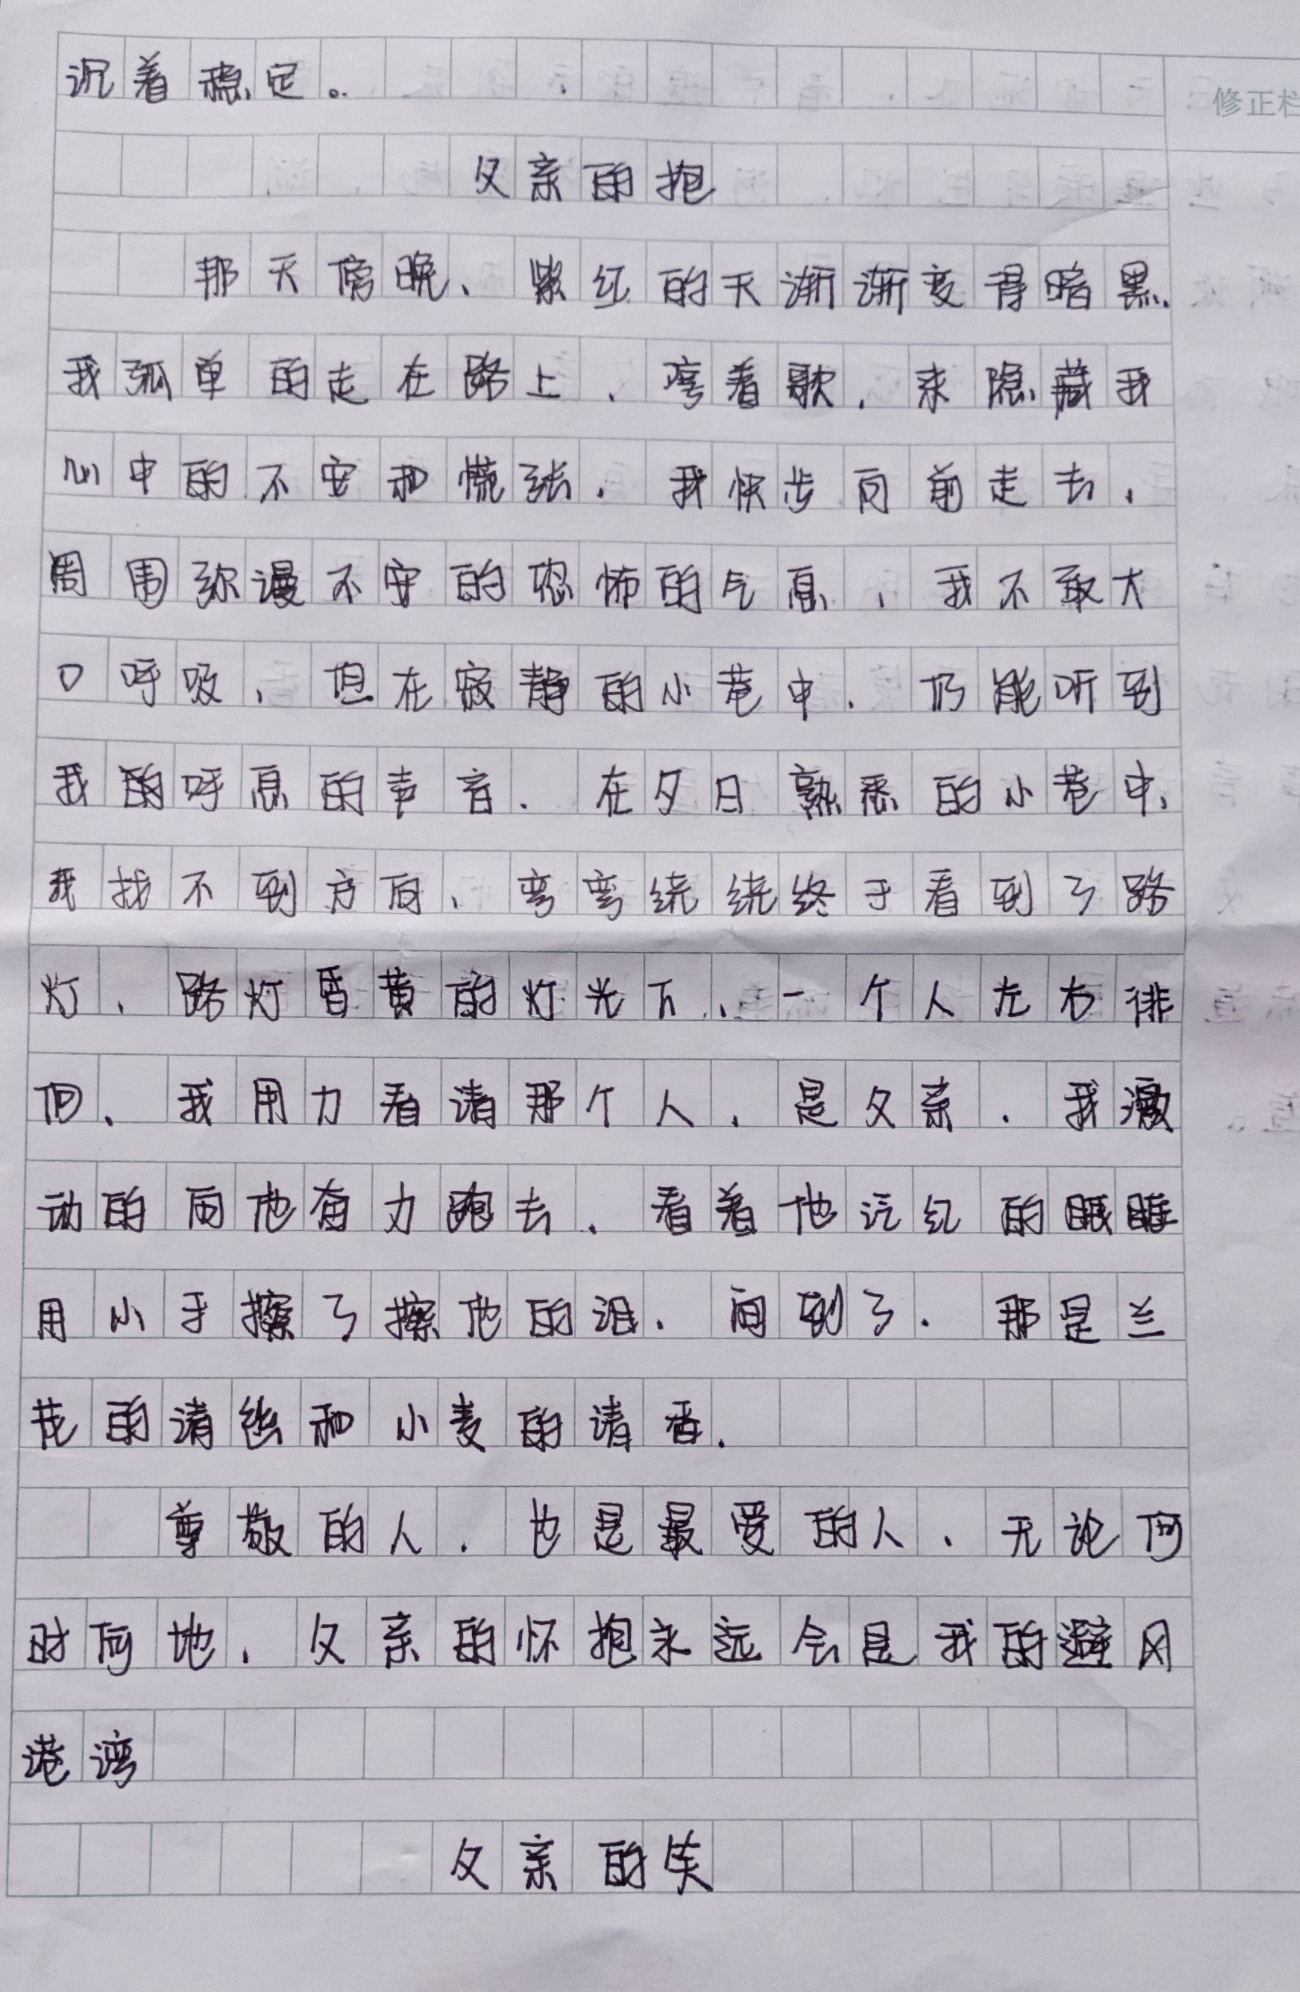 沉着稳定。
修正栏
父亲的抱
那天傍晚、紫红的天渐渐变得暗黑.
我孤单的走在路上，弯着歌，来隐藏我
心中的不安和慌张．我快步向前走去，
周围弥漫不安的恐怖的气息，我不敢大
口呼吸，但在寂静的小巷中．仍能听到
我的呼息的声音．在夕日熟悉的小巷中、
我找不到方向、弯弯绕绕终于看到了路
灯、路灯昏黄的灯光下、一个人左右徘
徊、我用力看清那个人，是父亲．我激
动的向他奋力跑去．看着他泛红的眼睡
用小手擦了擦他的泪．闻到了．那是兰
花的清丝和小麦的清香．
尊敬的人．也是最爱的人、无论何
时何地，父亲的怀抱永远会是我的避风
港湾
父亲的笑